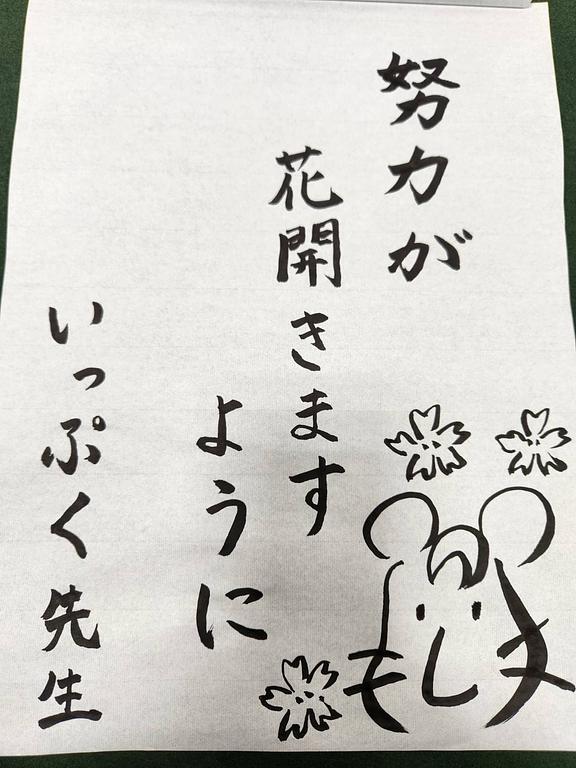 努力が
花開きます
ように
いっぷく先生